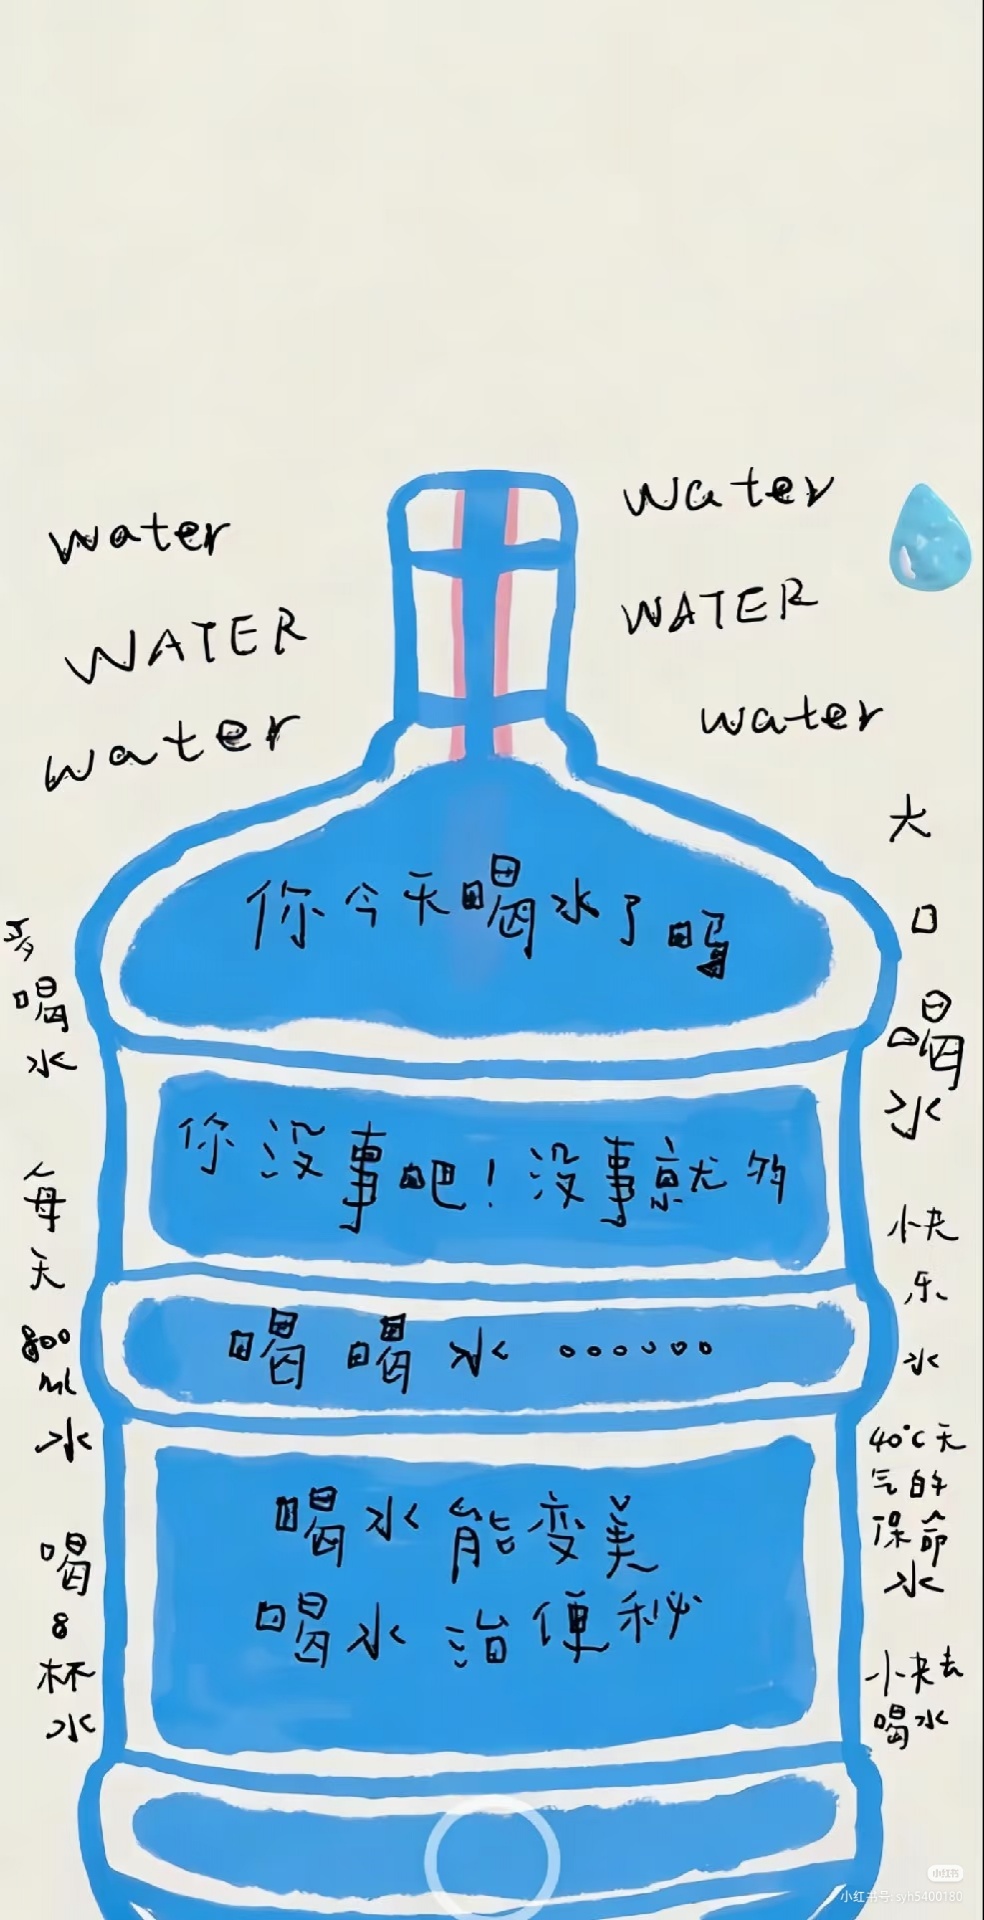 water
WATER
water
water
WATER
water
你今天喝水了吗
你没事吧！没事就多
喝喝水。。。。。。
喝水能变美
喝水治便秘
多
喝
水
每
天
800
ml
水
喝
8
杯
水
大
口
喝
水
快
乐
水
40°C天
气的
保命
水
快去
喝水
小红书
小红书号:syh5400180